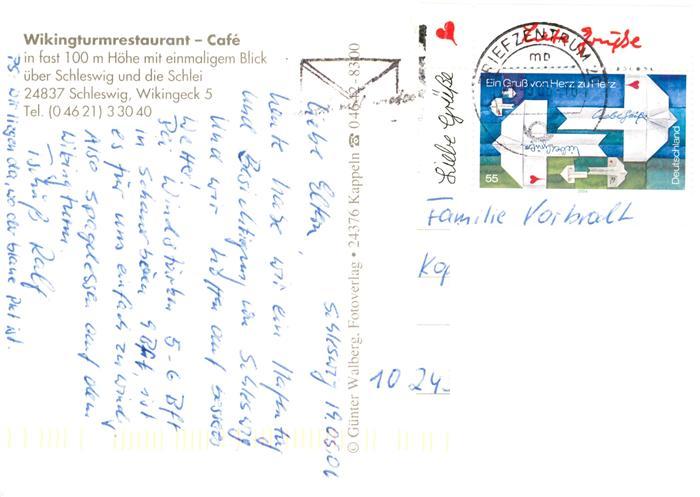 Wikingturmrestaurant – Café
in fast 100 m Höhe mit einmaligem Blick
über Schleswig und die Schlei
24837 Schleswig, Wikingeck 5
Tel. (0 46 21) 3 30 40
Schleswig 19.05.06
Liebe Eltern,
heute haben wir ein Hafentag
und Besichtigung von Schleswig
und wir hoffen auf besseres
Wetter.
Bei Windstärken 5-6 Bft
in Schauerböen 9 Bft, ist
es für uns einfach zu windig
Also Spagelessen auf dem
Wikingturm.
Tschüß Ralf
PS. Wir liegen da, wo der blaue Pkt ist.
© Günter Walberg, Fotoverlag • 24376 Kappeln ☎ 04642-83400
Liebe Grüße
Liebe Grüße
BRIEFZENTRUM
mb
Ein Gruß von Herz zu Herz
Liebe Grüße
Liebe Grüße
55
Deutschland
Familie Vorbralt
Kop
10 24